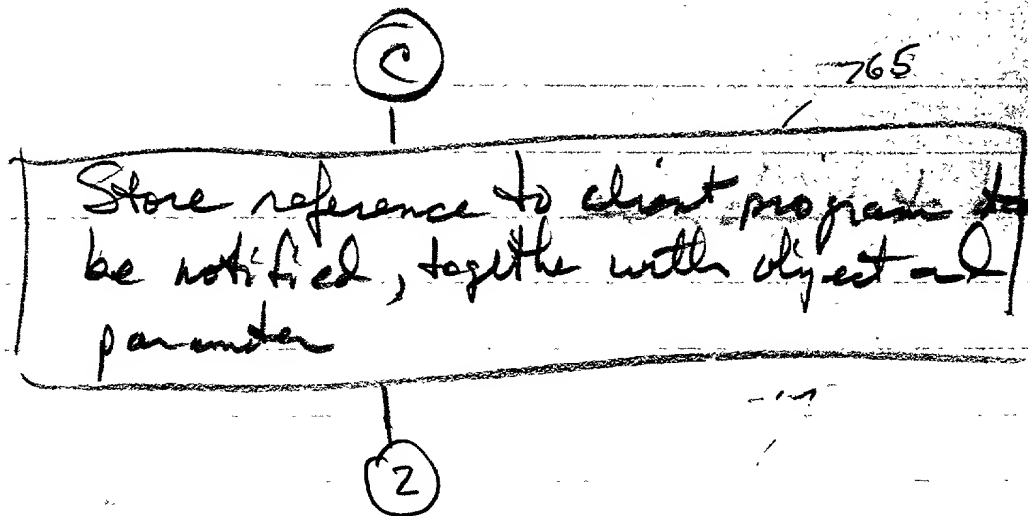 C
765
Store reference to client program to
be notified, togethe with object and
parameter
2